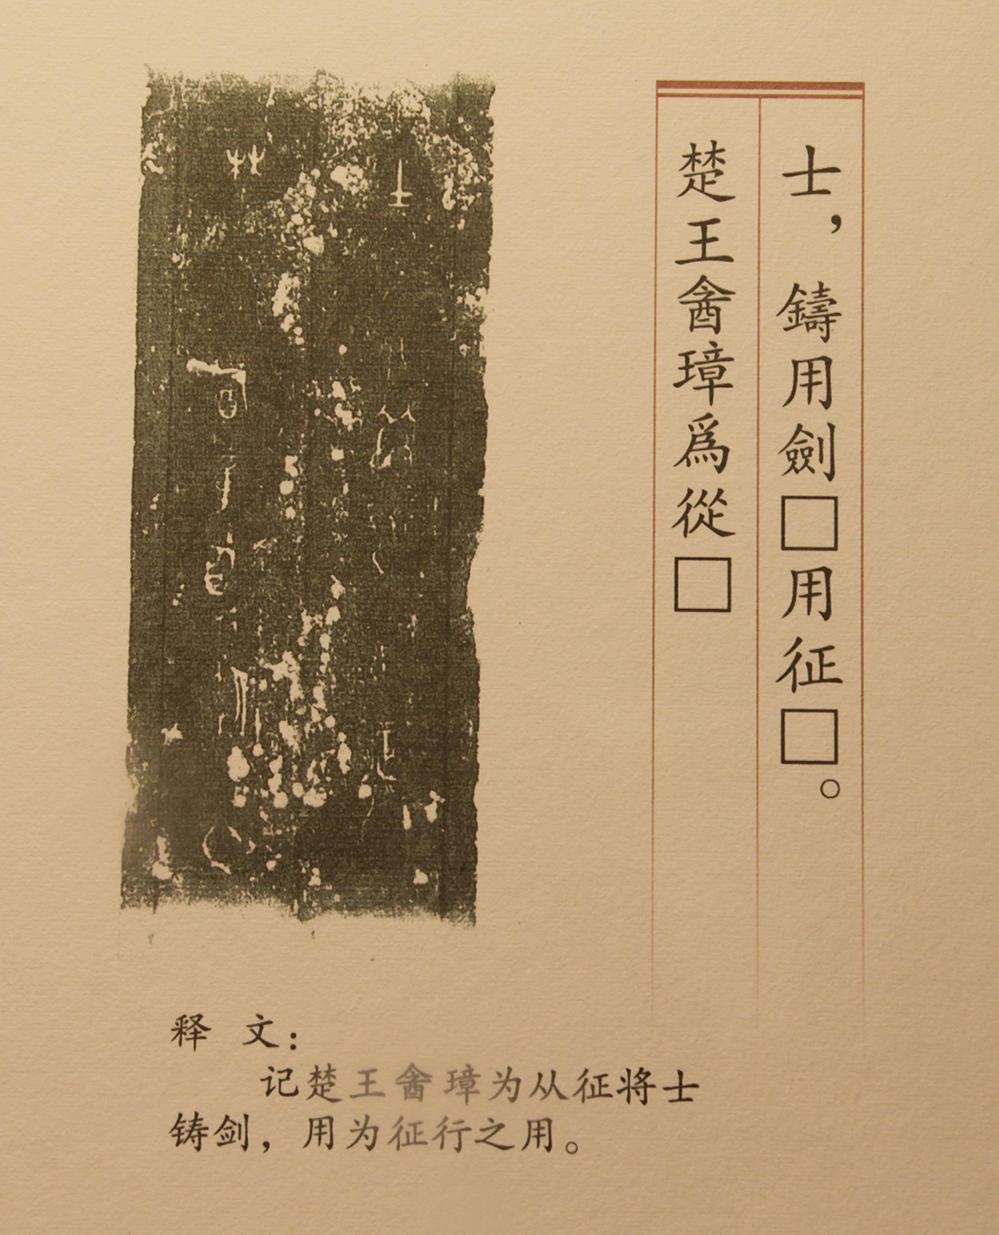 楚王酓璋爲從□
士，鑄用劍□用征□。
释 文：
记楚王酓璋为从征将士
铸剑，用为征行之用。